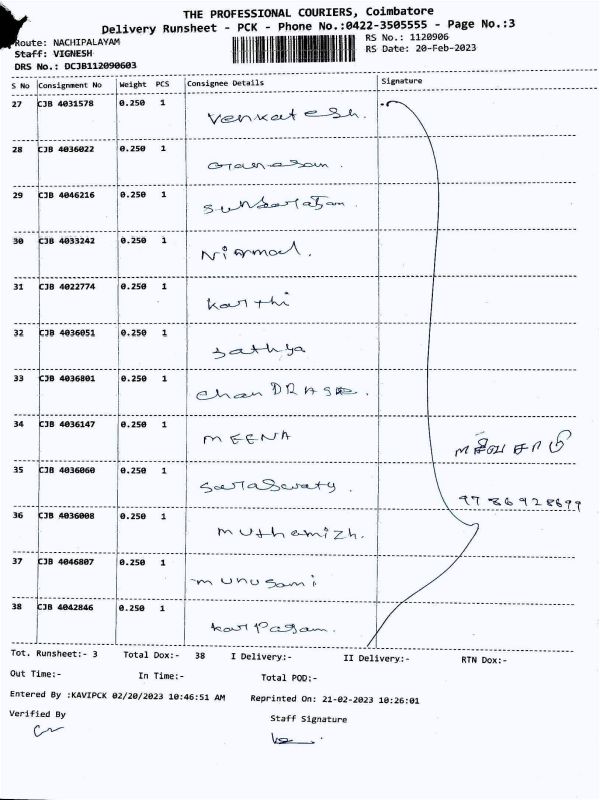 THE PROFESSIONAL COURIERS, Coimbatore
Delivery Runsheet - PCK - Phone No.:0422-3505555 - Page No.:3
Route: NACHIPALAYAM RS No.: 1120906
Staff: VIGNESH RS Date: 20-Feb-2023
DRS No.: DCJB112090603
S No Consignment No Weight PCS Consignee Details Signature
27 CJB 4031578 0.250 1 Venkatesh.
28 CJB 4036022 0.250 1 Ganesan.
29 CJB 4046216 0.250 1
30 CJB 4033242 0.250 1 Nirmal.
31 CJB 4022774 0.250 1 Karthi
32 CJB 4036051 0.250 1 Sathya
33 CJB 4036801 0.250 1
34 CJB 4036147 0.250 1 MEENA
35 CJB 4036060 0.250 1 Saraswaty.
9786928699
36 CJB 4036008 0.250 1 muthamizh.
37 CJB 4046807 0.250 1 munusami
38 CJB 4042846 0.250 1 karpagam.
Tot. Runsheet:- 3 Total Dox:- 38 I Delivery:- II Delivery:- RTN Dox:-
Out Time:- In Time:- Total POD:-
Entered By :KAVIPCK 02/20/2023 10:46:51 AM Reprinted On: 21-02-2023 10:26:01
Verified By Staff Signature